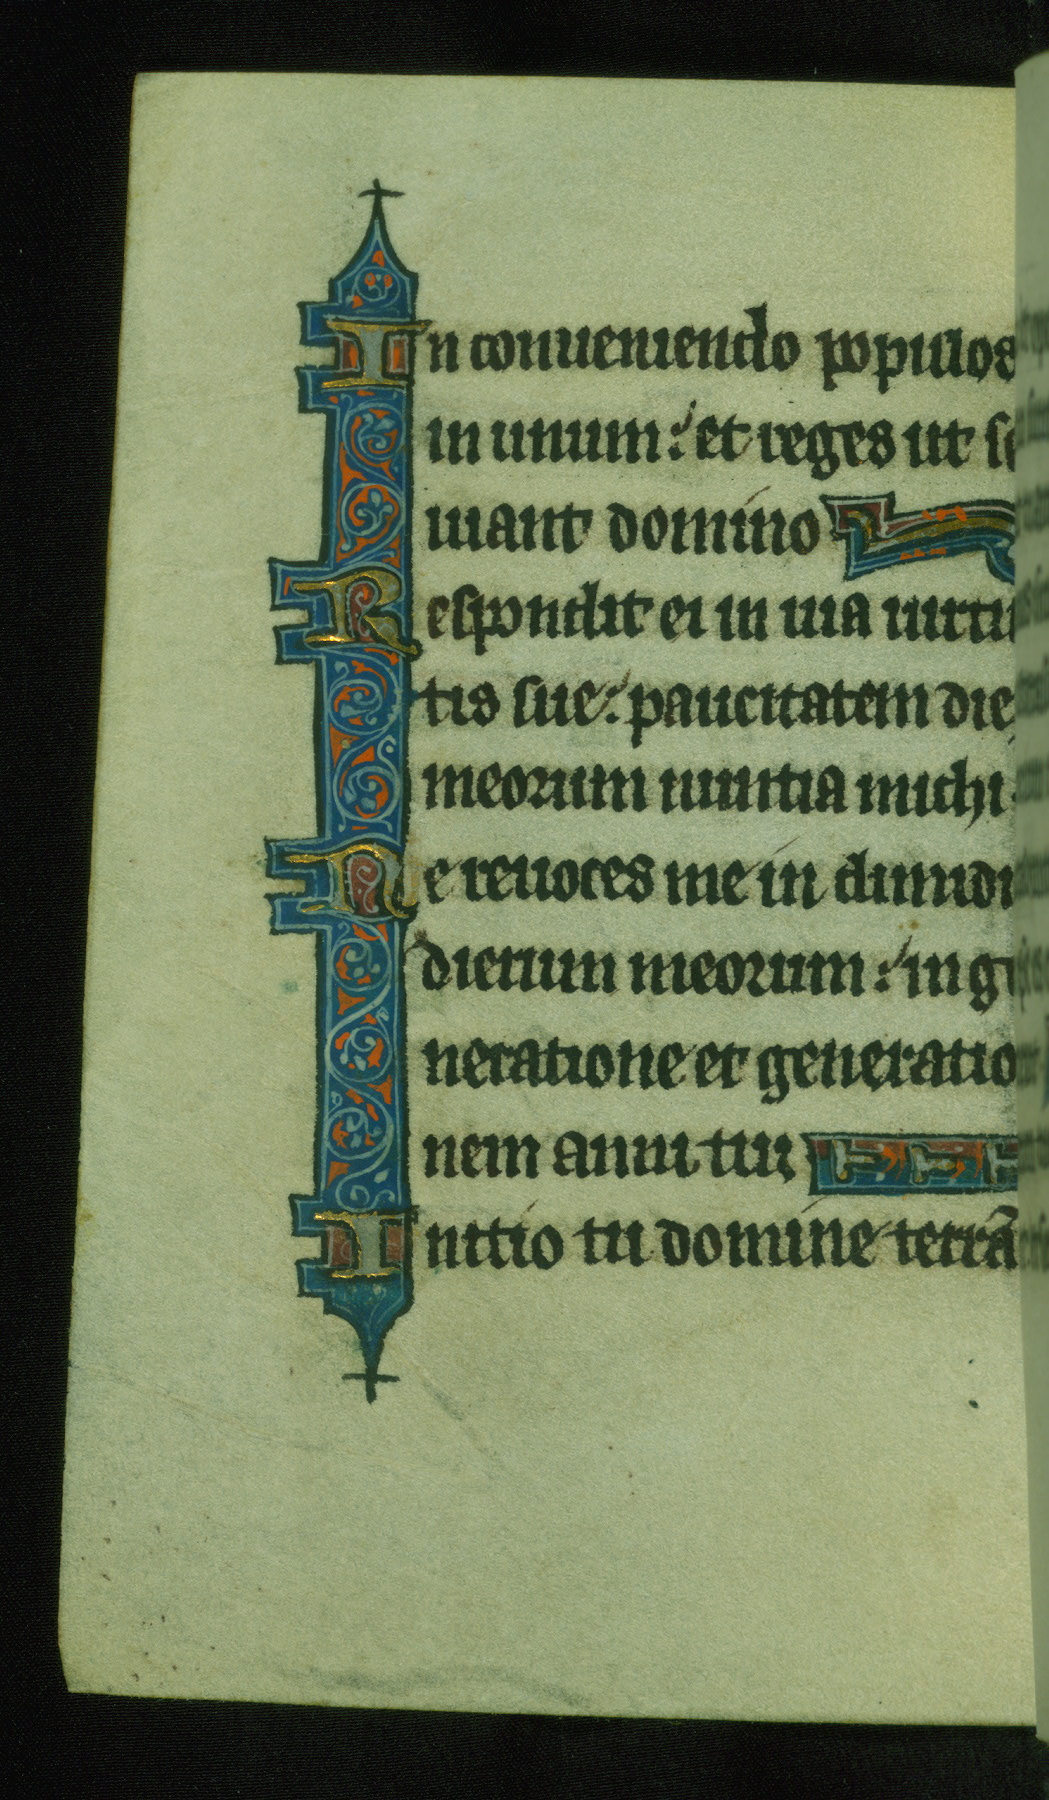 In conueniendo populos
in unum: et reges ut se
uiant domino
Respondit ei in uia uirtu
tis sue: paucitatem die
meorum nuntia michi
Ne reuoces me in dimidi
dierum meorum: in ge
neratione et generatio
nem anni tui
Initio tu domine terrā